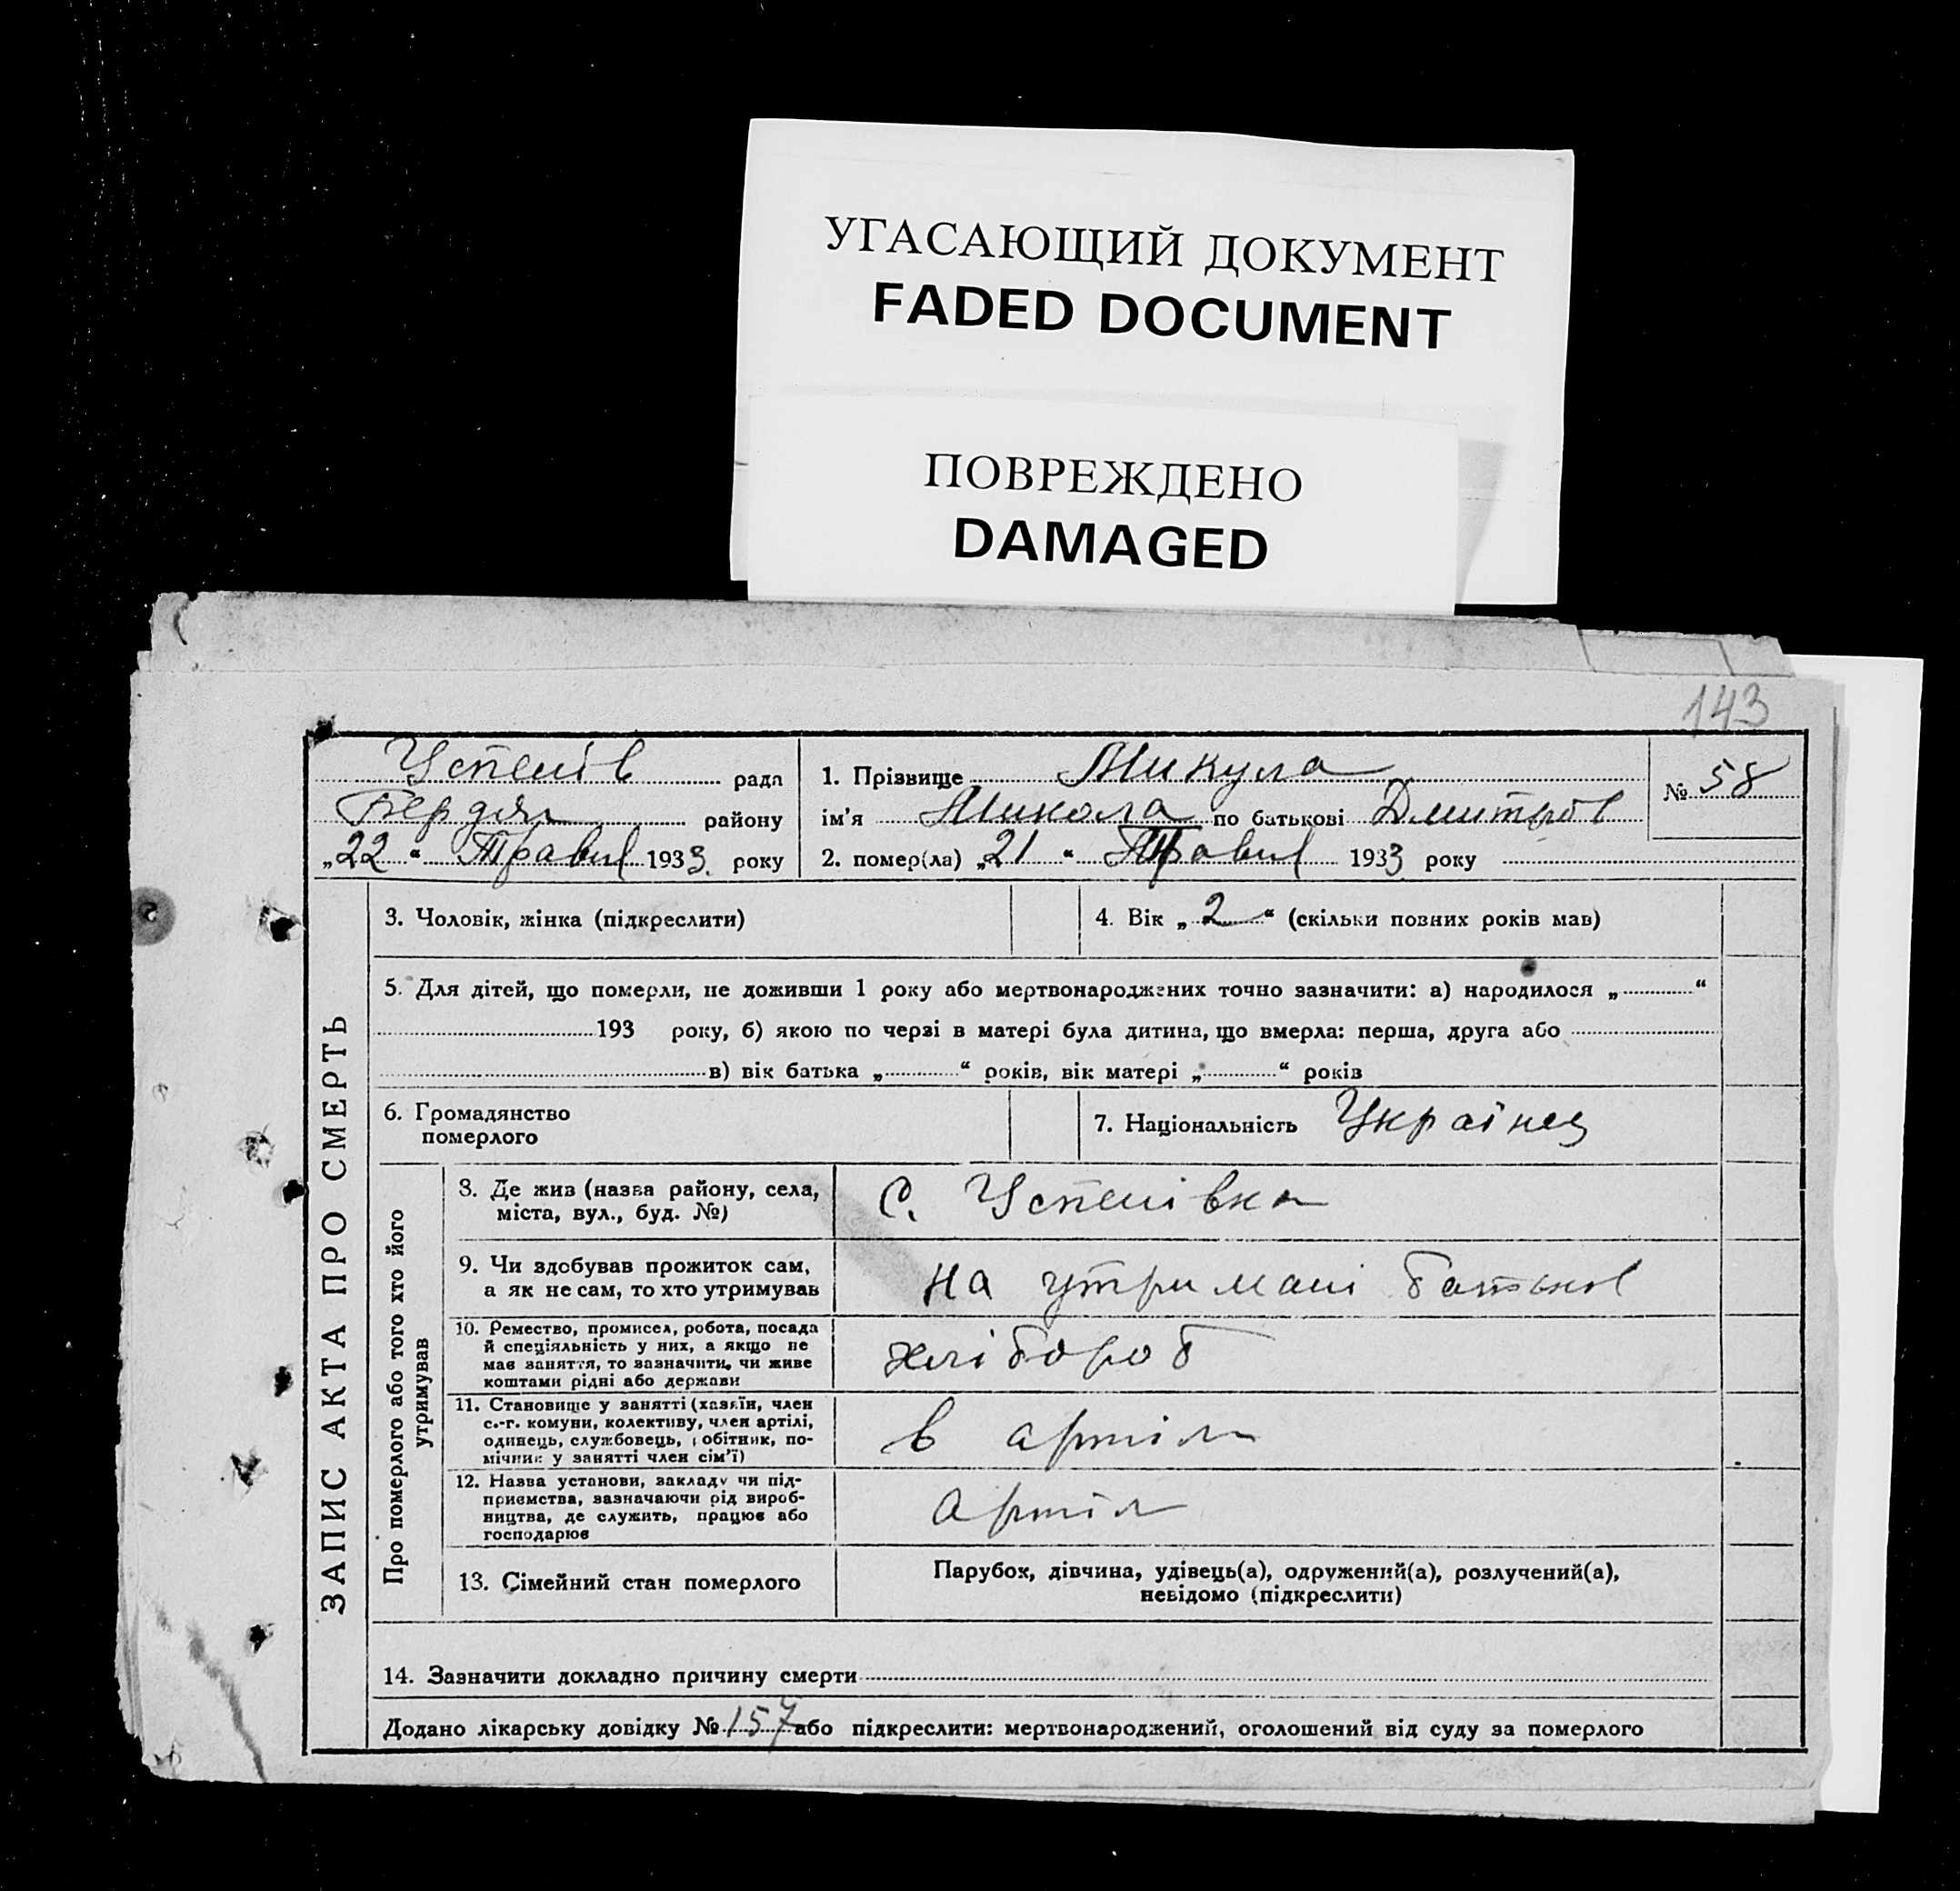 УГАСАЮЩИЙ ДОКУМЕНТ
FADED DOCUMENT
ПОВРЕЖДЕНО
DAMAGED
143
Успенів рада
Бердян району
„22“ Травня 1933. року
1. Прізвище Микула
ім'я Микола по батькові Дмитров
2. помер(ла) „21“ Травня 1933 року
№ 58
ЗАПИС АКТА ПРО СМЕРТЬ
3. Чоловік, жінка (підкреслити)
4. Вік „2“ (скільки повних років мав)
5. Для дітей, що померли, не доживши 1 року або мертвонароджених точно зазначити: а) народилося „ “
193 року, б) якою по черзі в матері була дитина, що вмерла: перша, друга або
в) вік батька „ “ років, вік матері „ “ років
6. Громадянство
померлого
7. Національність Українец
Про померлого або того хто його
утримував
8. Де жив (назва району, села,
міста, вул., буд. №)
С. Успенівка
9. Чи здобував прожиток сам,
а як не сам, то хто утримував
на утримані батьков
10. Ремество, промисел, робота, посада
й спеціяльність у них, а якщо не
має заняття, то зазначити, чи живе
коштами рідні або держави
хлібороб
11. Становище у занятті (хазяїн, член
с.-г. комуни, колективу, член артілі,
одинець, службовець, робітник, по-
мічник у занятті член сім'ї)
в артіли
12. Назва установи, закладу чи під-
приємства, зазначаючи рід вироб-
ництва, де служить, працює або
господарює
Артіл
13. Сімейний стан померлого
Парубок, дівчина, удівець(а), одружений(а), розлучений(а),
невідомо (підкреслити)
14. Зазначити докладно причину смерти
Додано лікарську довідку № 157 або підкреслити: мертвонароджений, оголошений від суду за померлого